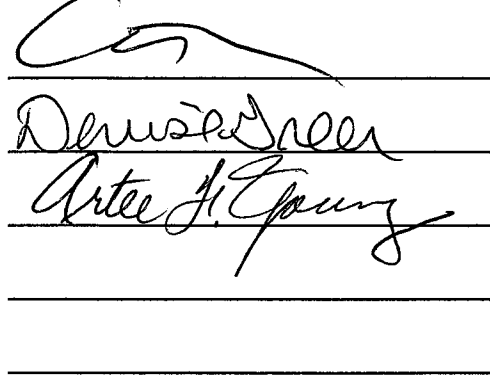 Denise Green
Artee F. Young